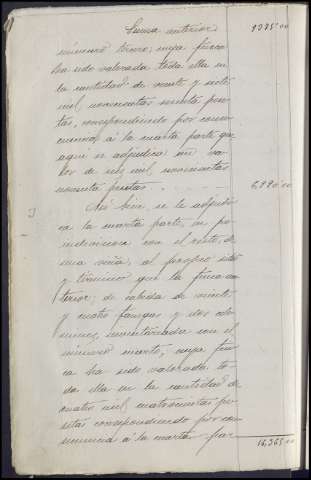 Suma anterior 9375'00
número tercero; cuya finca
ha sido valorada toda ella en
la cantidad de veinte y siete
mil, novecientas sesenta pese-
tas, correspondiendo por conse-
cuencia, á la cuarta parte que
aqui se adjudica un va-
lor de seis mil, novecientas
noventa pesetas. 6,990'00
Asi bien, se le adjudi-
ca la cuarta parte, en po-
indivision con el resto, de
una viña, al propio sitio
y término que la finca an-
terior; de cabida de veinte
y cuatro fanegas y dos cele-
mines, inventariada con el
número cuarto, cuya fin-
ca ha sido valorada to-
da ella en la cantidad de
cuatro mil, cuatrocientas pe-
setas correspondiendo por con-
secuencia á la cuarta par-
16,365'00